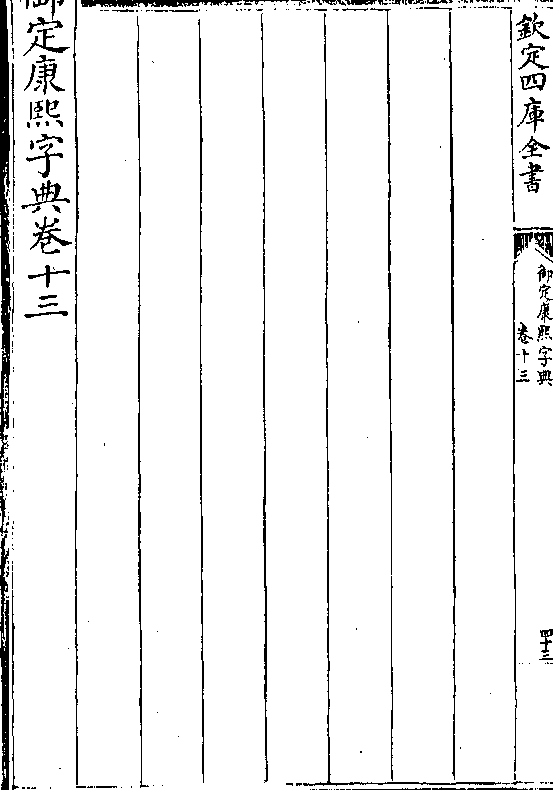 欽定四庫全書
御定康熙字典
卷十三
四十三
御定康熙字典卷十三